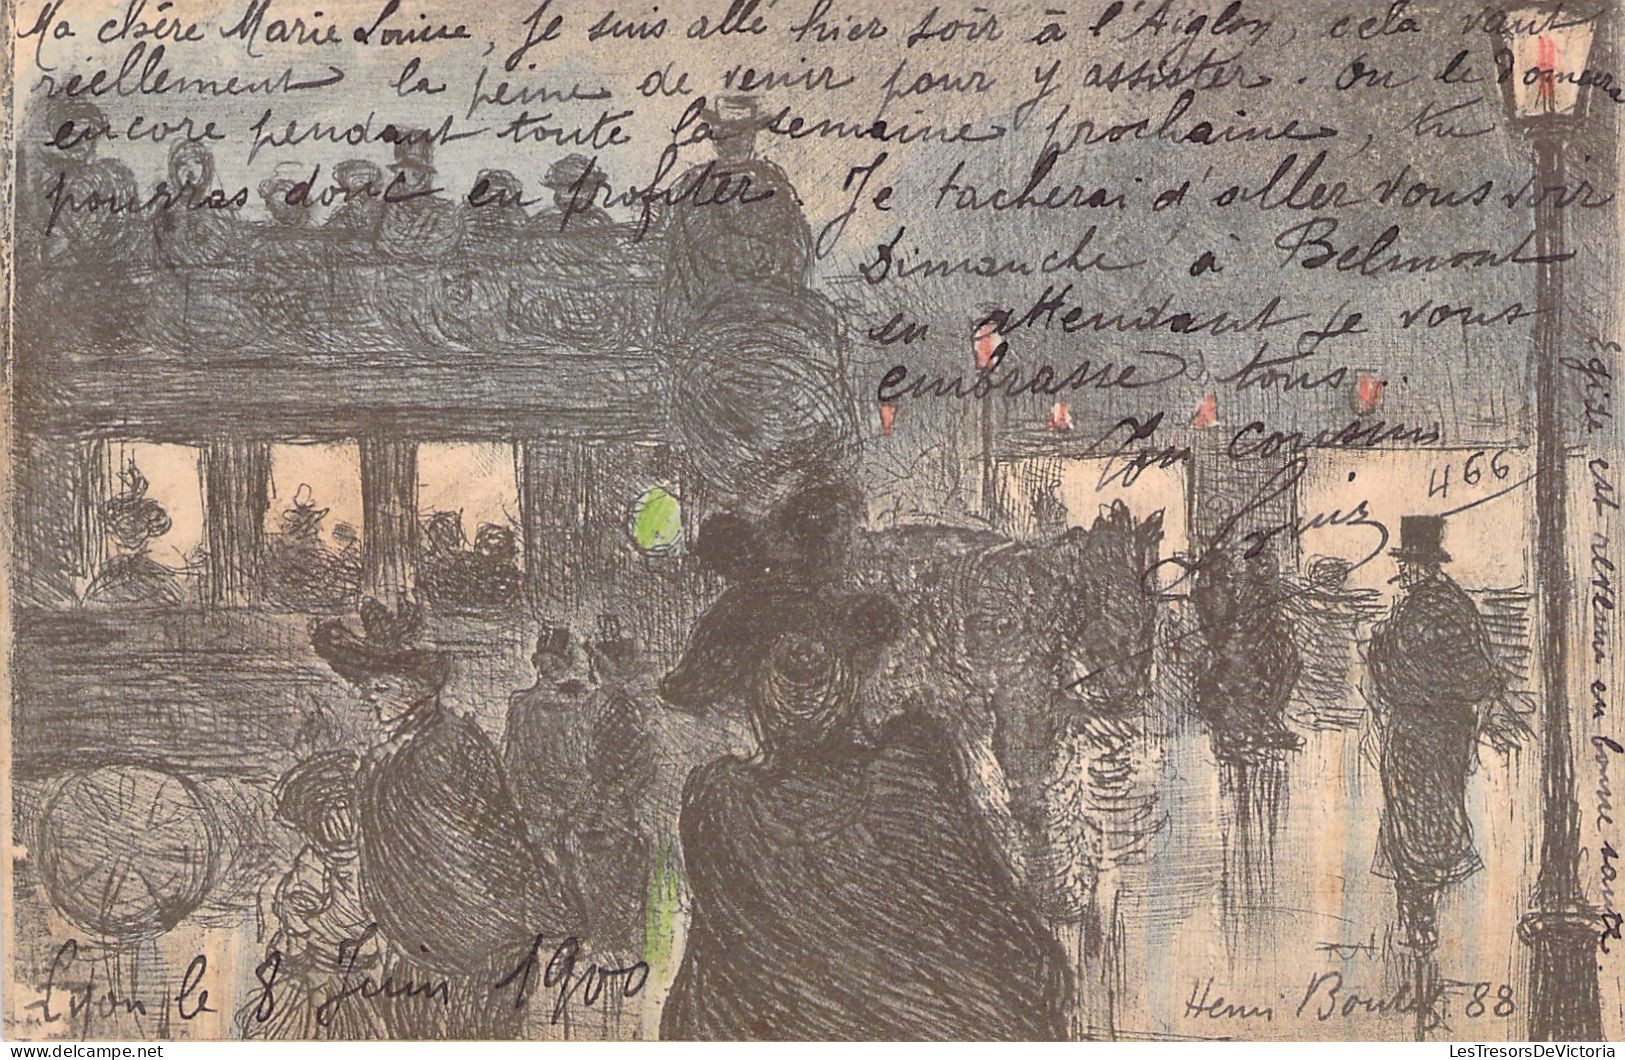 Ma chère Marie Louise, Je suis allé hier soir à l'Aiglon, cela vaut
réellement la peine de venir pour y assister. On le donnera
encore pendant toute la semaine prochaine, tu
pourras donc en profiter. Je tacherai d'aller vous voir
Dimanche à Belmont
en attendant je vous
embrasse tous..
Ton cousin
Louis
466
est revenu en bonne santé.
Lyon le 8 Juin 1900
Henri Boutet 88
LesTresorsDeVictoria